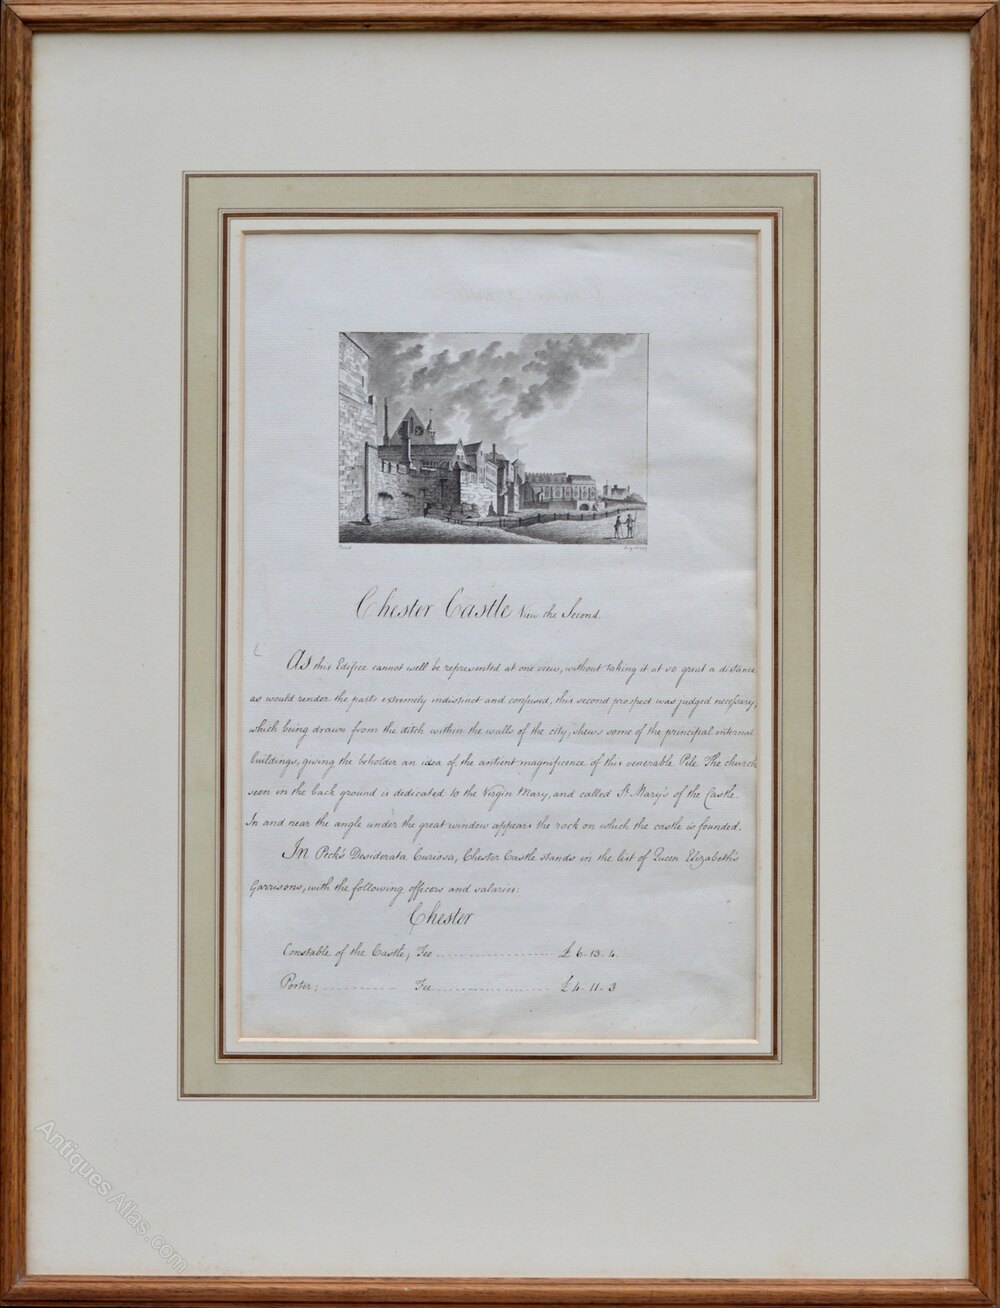 Chester Castle View the Second.
As this Edifice cannot well be represented at one view, without taking it at so great a distance
as would render the parts extremely indistinct and confused, this second prospect was judged necessary,
which being drawn from the ditch within the walls of the city, shews some of the principal internal
buildings, giving the beholder an idea of the antient magnificence of this venerable Pile. The church
seen in the back ground is dedicated to the Virgin Mary, and called St. Mary's of the Castle.
In and near the angle under the great window appears the rock on which the castle is founded.
In Peck's Desiderata Curiosa, Chester Castle stands in the list of Queen Elizabeth's
Garrisons, with the following officers and salaries:
Chester
Constable of the Castle, Fee .................... £ 6-13-4.
Porter; ............ Fee .................... £ 4-11-3
Antiques Atlas.com